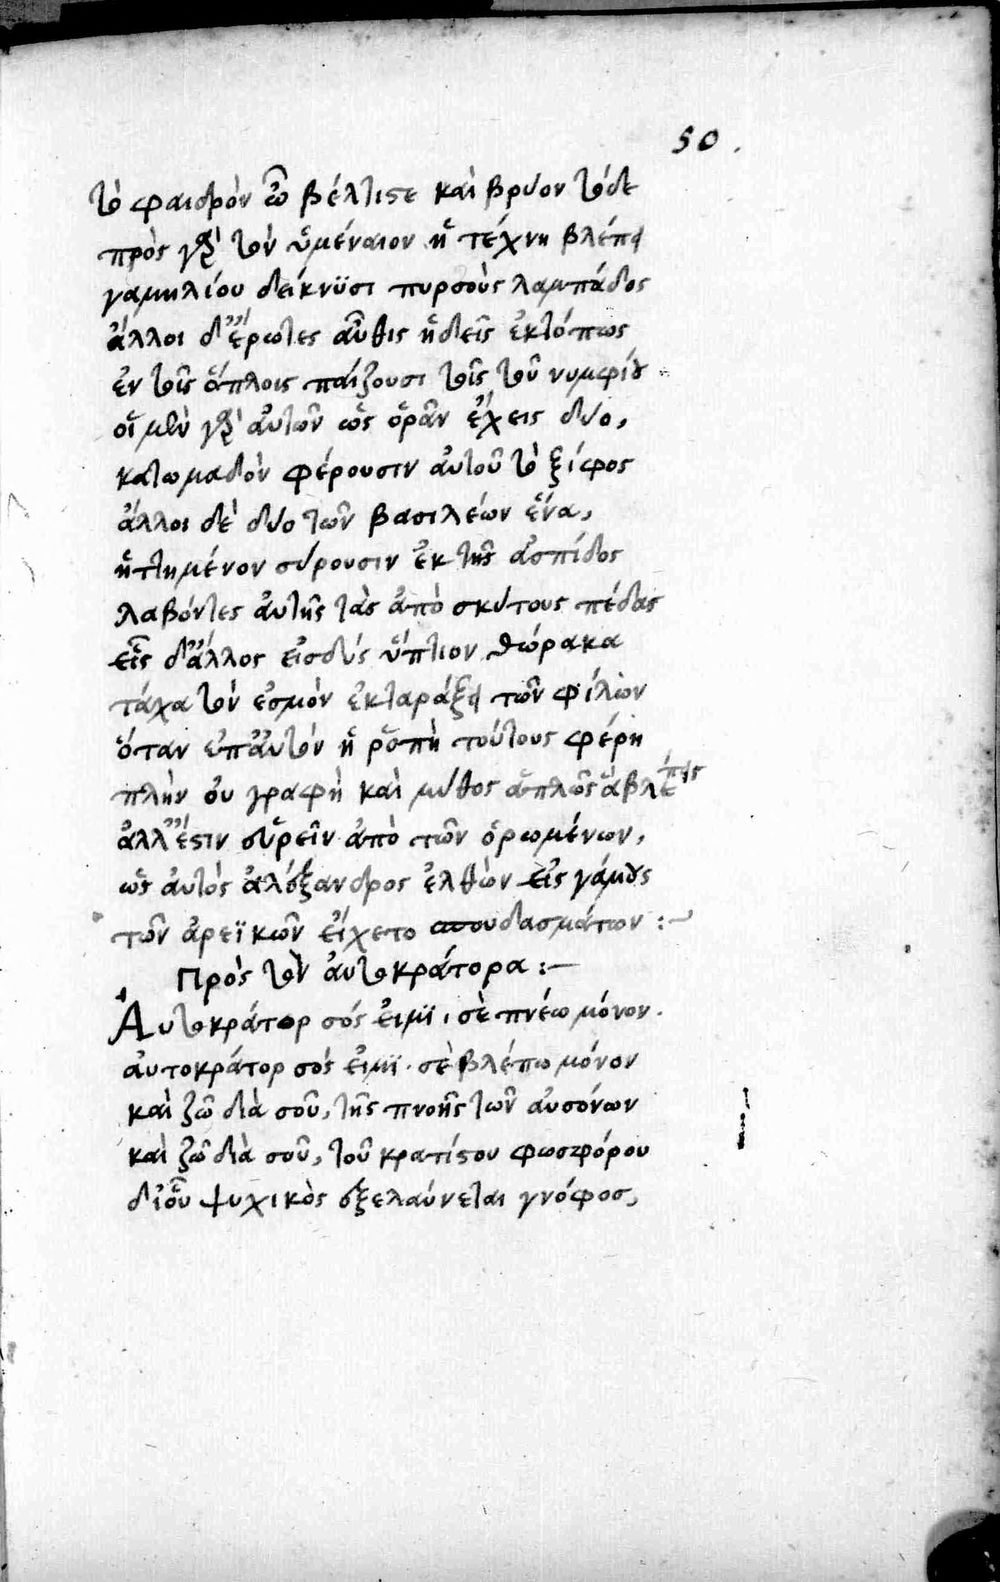 50.
τὸ φαιδρὸν ὦ βέλτιστε καὶ βρύον τόδε
πρὸς γὰρ τὸν ὑμέναιον ἡ τέχνη βλέπει
γαμηλίου δείκνυϊσι πυρσοὺς λαμπάδος
ἄλλοι δ' ἔρωτες αὖθις ἡδεῖς ἐκτόπως
ἐν τοῖς ὅπλοις παίζουσι τοῖς τοῦ νυμφίου
οἱ μὲν γὰρ αὐτῶν ὡς ὁρᾶν ἔχεις δύο,
κατωμαδὸν φέρουσιν αὐτοῦ τὸ ξίφος
ἄλλοι δὲ δύο τῶν βασιλέων ἕνα,
ἡττημένον σύρουσιν ἐκ τῆς ἀσπίδος
λαβόντες αὐτῆς τὰς ἀπὸ σκύτους πέδας
εἷς δ' ἄλλος εἰσδὺς ὕπτιον θώρακα
τάχα τὸν ἐσμὸν ἐκταράξει τῶν φίλων
ὅταν ἐπ' αὐτὸν ἡ ῥοπὴ τούτους φέρη
πλὴν οὐ γραφὴ καὶ μύθος ἁπλῶς ἃ βλέπεις
ἀλλ' ἔστιν εὑρεῖν ἀπὸ τῶν ὁρωμένων,
ὡς αὐτὸς ἀλέξανδρος ἐλθὼν εἰς γάμους
τῶν ἀρεϊκῶν εἴχετο σπουδασμάτων :-
Πρὸς τὸν αὐτοκράτορα :-
Αὐτοκράτορ σός εἰμϊ, σὲ πνέω μόνον.
αὐτοκράτορ σός εἰμϊ. σὲ βλέπω μόνον
καὶ ζῶ διὰ σοῦ, τῆς πνοῆς τῶν αὐσόνων
καὶ ζῶ διὰ σοῦ, τοῦ κρατίστου φωσφόρου
δι' οὗ ψυχικὸς ἐξελαύνεται γνόφος,